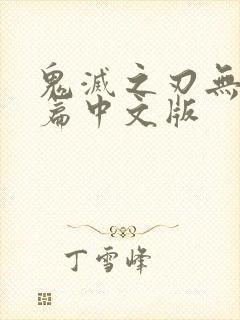 鬼滅之刃無
篇中文版
丁雪峰